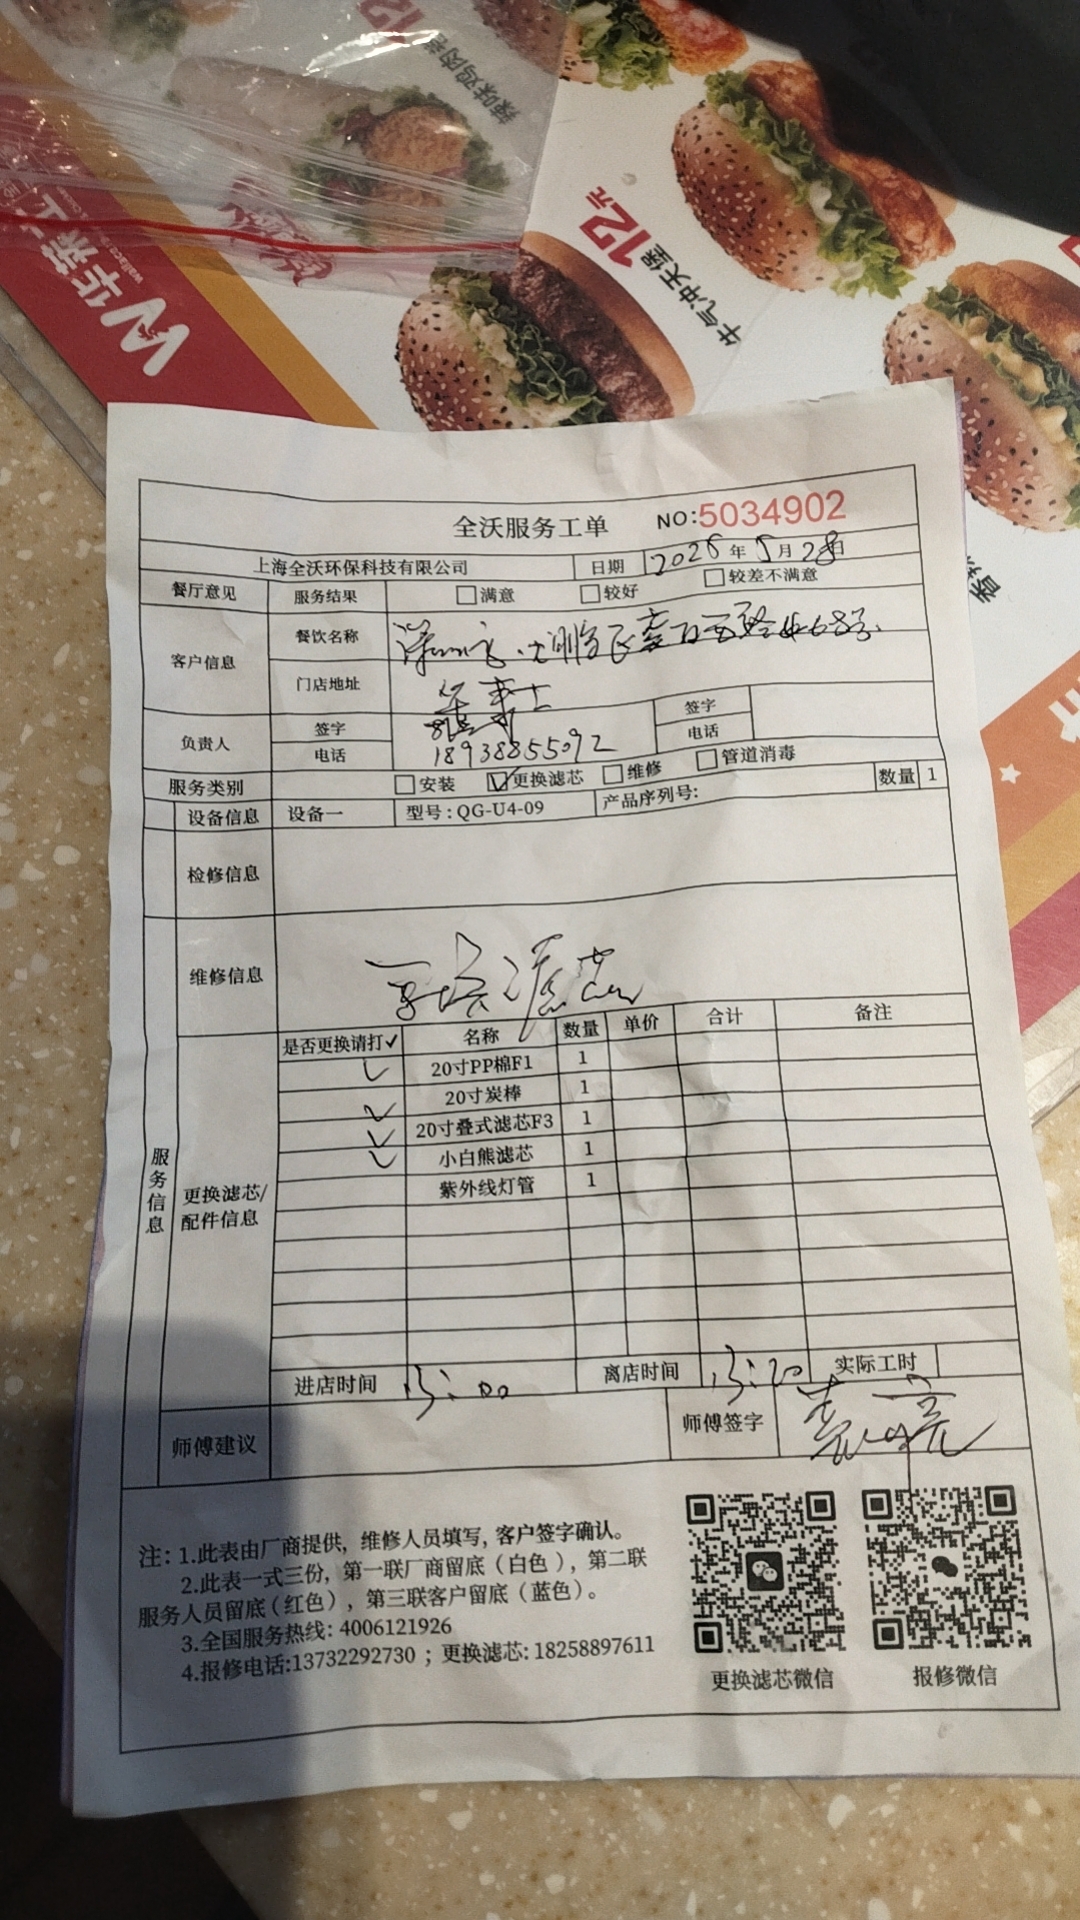 辣味鸡肉卷
12
华莱士
12元
牛气冲天堡
全沃服务工单 NO:5034902
上海全沃环保科技有限公司 日期 2025年5月28日
餐厅意见 服务结果 □满意 □较好 □较差不满意
客户信息 餐饮名称
门店地址
负责人 签字 签字
电话 18938855092 电话
服务类别 □安装 ☑更换滤芯 □维修 □管道消毒
设备信息 设备一 型号:QG-U4-09 产品序列号: 数量 1
检修信息
维修信息 更换滤芯
服务信息
更换滤芯/配件信息
是否更换请打✓ 名称 数量 单价 合计 备注
✓ 20寸PP棉F1 1
✓ 20寸炭棒 1
✓ 20寸叠式滤芯F3 1
✓ 小白熊滤芯 1
紫外线灯管 1
进店时间 13:00 离店时间 13:20 实际工时
师傅建议 师傅签字
注: 1.此表由厂商提供, 维修人员填写, 客户签字确认。
2.此表一式三份, 第一联厂商留底(白色), 第二联
服务人员留底(红色), 第三联客户留底(蓝色)。
3.全国服务热线: 4006121926
4.报修电话:13732292730 ; 更换滤芯: 18258897611
更换滤芯微信 报修微信